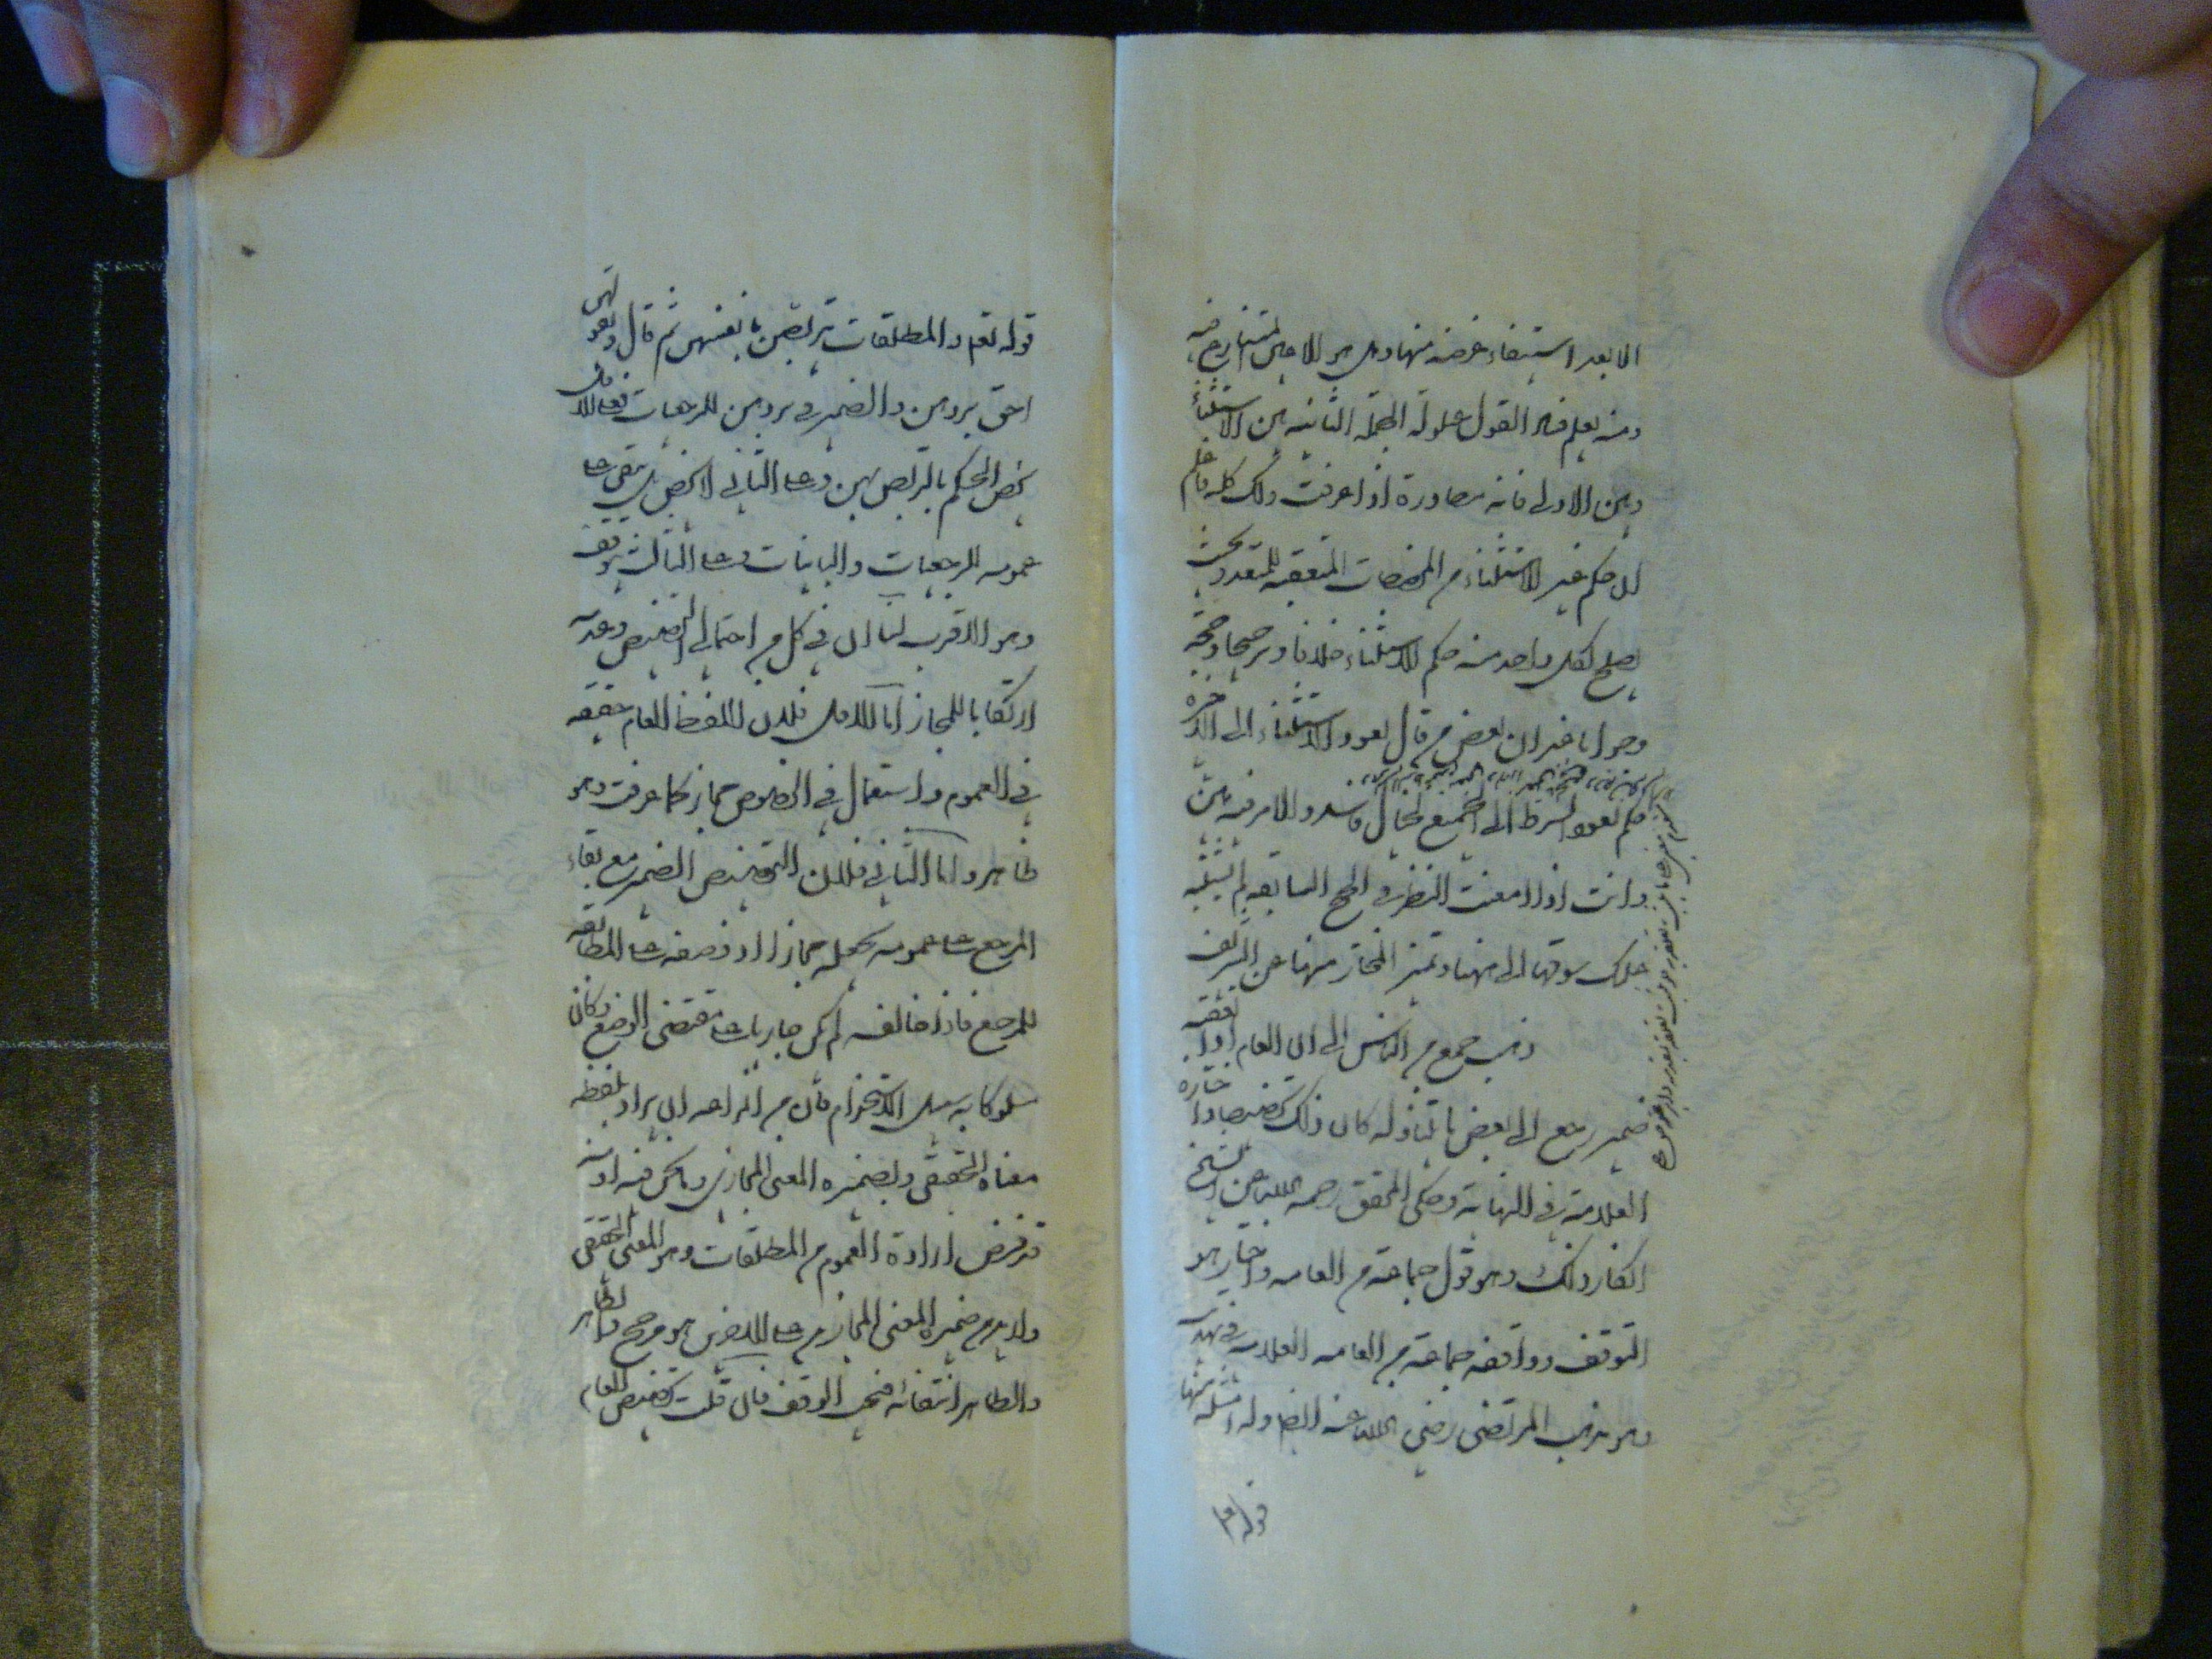 الا بعد استيفاء غرضه منها وهل هو الا عين المتنازع فيه
ومنه يعلم فساد القول بحيلولة الجملة الثانية بين الاستثناء
وبين الاولى فانه مصادرة اذا عرفت ذلك كله فاعلم
ان حكم غير الاستثناء من المخصصات المتعقبة للمتعدد بحيث
يصلح لكل واحد منه حكم الاستثناء خلافا وترجيحا وحجة
وجوابا غير ان بعض من قال بعود الاستثناء الى الاخيرة
حكم بعود الشرط الى الجميع لخيال فاسد والامر فيه هين
وانت اذا امعنت النظر في الحجج السابقة لم يشتبه
عليك سوقها الى هنا وتميز المختار منها عن المزيف
ذهب جمع من الناس الى ان العام اذا تعقبه
ضمير رجع الى بعض ما تناوله كان ذلك تخصيصا واختاره
العلامة في النهاية وحكى المحقق رحمه الله عن الشيخ
انكار ذلك وهو قول جماعة من العامة واختار هو
التوقف ووافقه جماعة من العامة العلامة في تهذيبه
وهو مذهب المرتضى رضي الله عنه ايضا وله امثلة منها
قوله تعا
قوله تعالى والمطلقات يتربصن بانفسهن ثم قال وبعولتهن
احق بردهن والضمير في بردهن للرجعيات فعلى الاول
يخص الحكم بالتربص بهن وعلى الثاني لا يخص بل يبقى على
عمومه للرجعيات والباينات وعلى الثالث يتوقف
وهو الاقرب لنا ان في كل من احتمالي التخصيص وعدمه
ارتكابا للمجاز اما الاول فلان اللفظ العام حقيقة
في العموم واستعماله في الخصوص مجاز كما عرفت وهو
ظاهر واما الثاني فلان تخصيص الضمير مع بقاء
المرجع على عمومه يجعله مجازا اذ وضعه على المطابقة
للمرجع فاذا خالفه لم يكن جاريا على مقتضى الوضع وكان
سلوكا به سبيل الاستخدام فان من انواعه ان يراد بلفظ
معناه الحقيقي وبضميره المعنى المجازي وما نحن فيه منه اذ
قد فرض ارادة العموم من المطلقات وهو المعنى الحقيقي
واريد من ضميره المعنى المجازي
والظاهر انتفائه فيجب الوقف فان قلت تخصيص العام